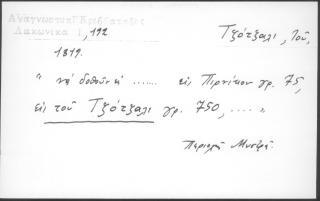 Ἀναγνωστοπ. Κριββάταβος
Λακωνικὰ 1, 192
Τζότζαλι, Τοῦ,
1819.
" νὰ δοθοῦν εἰ ....... εἰς Πιρνίκον γρ. 75,
εἰς τοῦ Τζότζαλι γρ. 750, .... "
Περιοχὴ Μυστρᾶ.